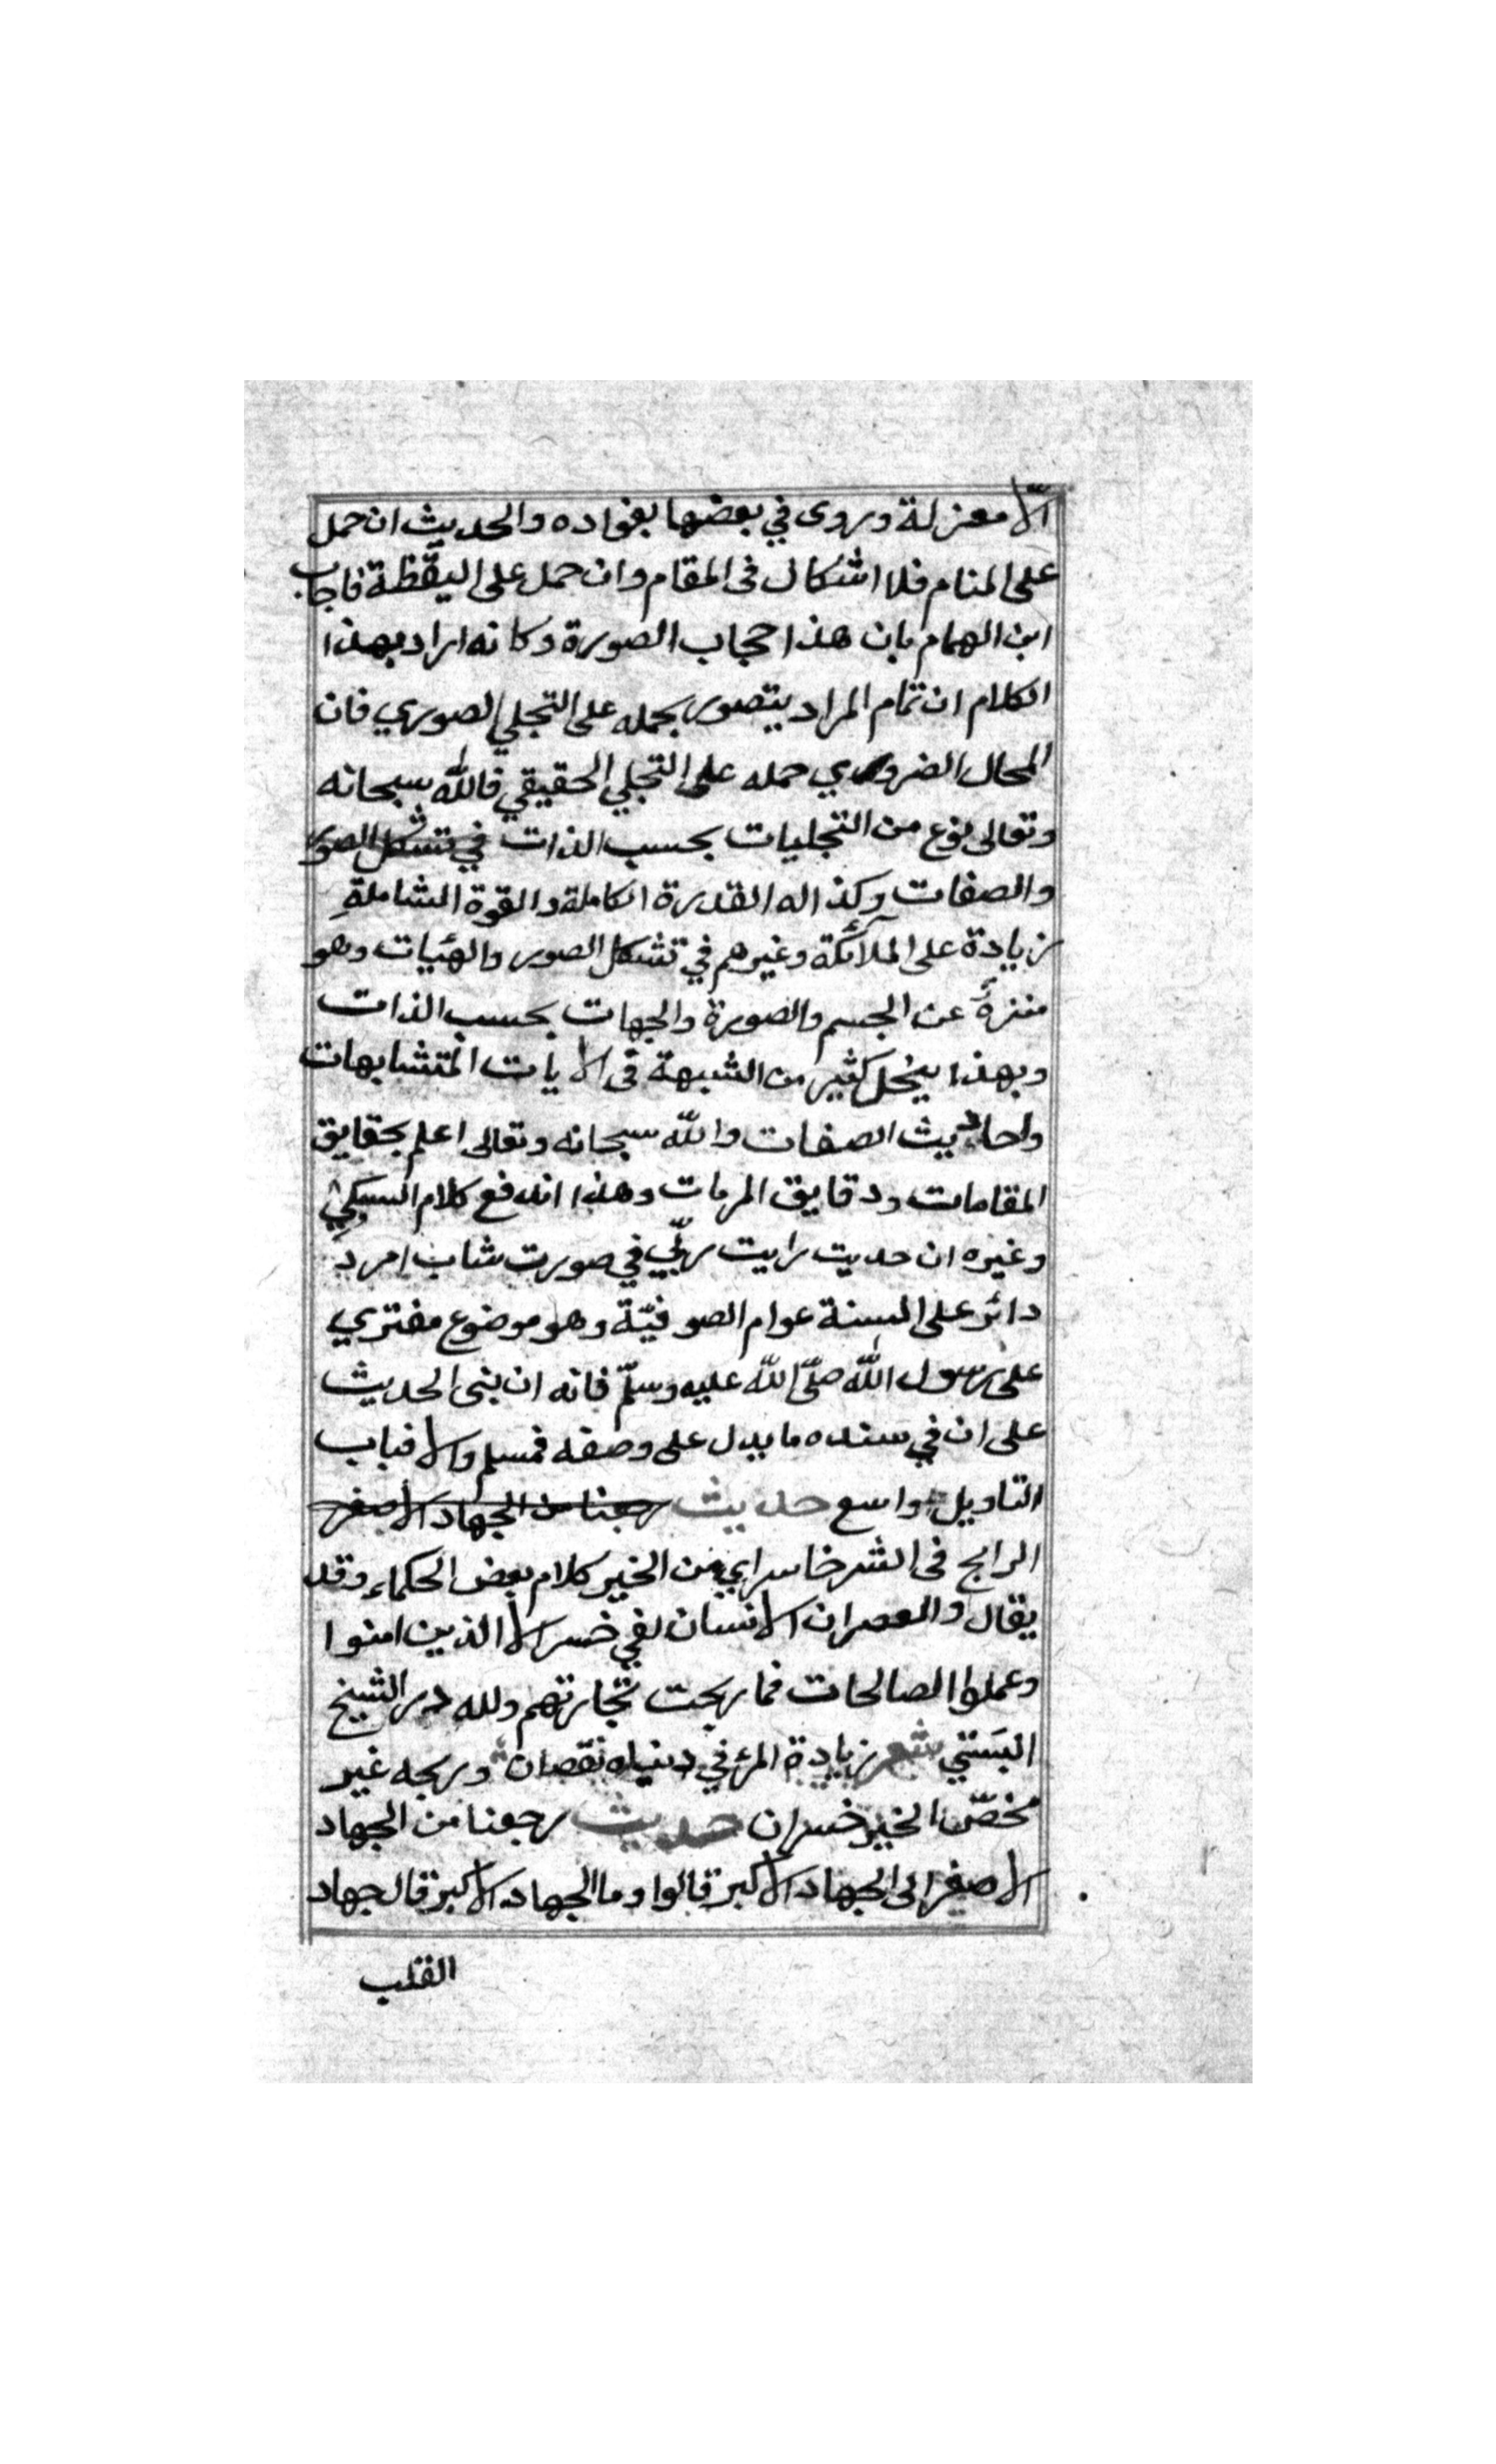 الّا معتزلة وروى في بعضها بفواده والحديث ان حمل
على المنام فلا اشكال فى المقام وان حمل على اليقظة فاجاب
ابن الهمام بان هذا حجاب الصورة وكانه اراد بهذا
الكلام ان تمام المراد يتصور بحمله على التجلي الصوري فان
المحال الضروري حمله على التجلي الحقيقي فالله سبحانه
وتعالى نوع من التجليات بحسب الذات في تشكل الصور
والصفات وكذا له القدرة الكاملة والقوة الشاملة
زيادة على الملآئكة وغيرهم في تشكل الصور والهئات وهو
منزه عن الجسم والصورة والجهات بحسب الذات
وبهذا ينحل كثير من الشبهة فى الايات المتشابهات
واحاديث الصفات والله سبحانه وتعالى اعلم بحقايق
المقامات ودقايق المرمات وهذا اندفع كلام السبكي
وغيره ان حديت رايت ربّي في صورت شاب امرد
دائر على السنة عوام الصوفيّة وهو موضوع مفتري
على رسول الله صلّى الله عليه وسلّم فانه ان بنى الحديث
على ان في سنده ما يدل على وصفه فمسلم والا فباب
التاويل واسع حديث رجعنا من الجهاد الاصغر
الرابح فى الشر خاسر اي من الخير كلام بعض الحكماء وقد
يقال والعصر ان الانسان لفي خسر الا الذين امنوا
وعملوا الصالحات فما ربحت تجارتهم ولله در الشيخ
البَستي شعر زيادة المرٔ في دنياه نقصان وربحه غير
محض الخير خسران حديث رجعنا من الجهاد
الاصغر الى الجهاد الاكبر قالوا وما الجهاد الاكبر قال جهاد
القلب